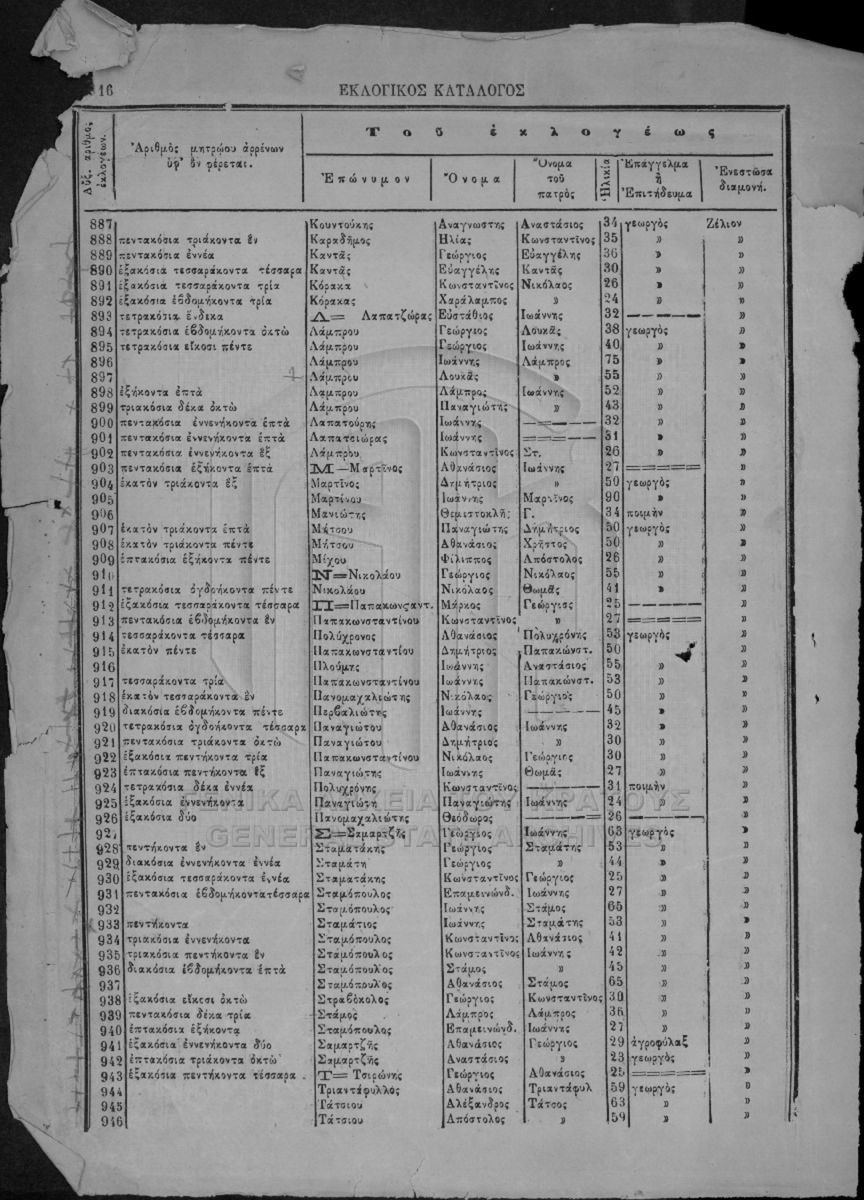 16 ΕΚΛΟΓΙΚΟΣ ΚΑΤΑΛΟΓΟΣ
Αὔξ. ἀριθμὸς ἐκλογέων. Ἀριθμὸς μητρῴου ἀρρένων ὑφ' ὃν φέρεται. Τοῦ ἐκλογέως
Ἐπώνυμον Ὄνομα Ὄνομα τοῦ πατρὸς Ἡλικία Ἐπάγγελμα ἢ Ἐπιτήδευμα Ἐνεστῶσα διαμονή.
887 Κουντούκης Αναγνωστης Αναστάσιος 34 γεωργὸς Ζέλιον
888 πεντακόσια τριάκοντα ἓν Καραδῆμος Ηλίας Κωνσταντῖνος 35 » »
889 πεντακόσια ἐννέα Καντᾶς Γεώργιος Εὐαγγέλης 36 » »
890 ἑξακόσια τεσσαράκοντα τέσσαρα Καντᾶς Εὐαγγέλης Καντᾶς 30 » »
891 ἑξακόσια τεσσαράκοντα τρία Κόρακα Κωνσταντῖνος Νικόλαος 26 » »
892 ἑξακόσια ἑβδομήκοντα τρία Κόρακας Χαράλαμπος » 24 » »
893 τετρακόσια ἕνδεκα Λ= Λαπατζώρας Εὐστάθιος Ιωάννης 32 ———— »
894 τετρακόσια ἑβδομήκοντα ὀκτὼ Λάμπρου Γεώργιος Λουκᾶς 38 γεωργὸς »
895 τετρακόσια εἴκοσι πέντε Λάμπρου Γεώργιος Ιωάννης 40 » »
896 Λάμπρου Ιωάννης Λάμπρος 75 » »
897 Λάμπρου Λουκᾶς » 55 » »
898 ἑξήκοντα ἑπτὰ Λαμπρου Λάμπρος Ιωάννης 52 » »
899 τριακόσια δέκα ὀκτὼ Λάμπρου Παναγιώτης » 43 » »
900 πεντακόσια ἐννενήκοντα ἑπτὰ Λαπατούρης Ιωάννης ———— 32 » »
901 πεντακόσια ἐννενήκοντα ἑπτὰ Λαπατσιώρας Ιωάννης ———— 31 » »
902 πεντακόσια ἐννενήκοντα ἓξ Λάμπρου Κωνσταντῖνος Στ. 26 » »
903 πεντακόσια ἑξήκοντα ἑπτὰ Μ—Μαρτῖνος Αθανάσιος Ιωάννης 27 ==== »
904 ἑκατὸν τριάκοντα ἓξ Μαρτῖνος Δημήτριος » 50 γεωργὸς »
905 Μαρτίνου Ιωάννης Μαρτῖνος 90 » »
906 Μανιώτης Θεμιστοκλῆς Γ. 34 ποιμὴν »
907 ἑκατὸν τριάκοντα ἑπτὰ Μήτσου Παναγιώτης Δημήτριος 50 γεωργὸς »
908 ἑκατὸν τριάκοντα πέντε Μήτσου Αθανάσιος Χρῆστος 50 » »
909 ἑπτακόσια ἑξήκοντα πέντε Μίχου Φίλιππος Απόστολος 26 » »
910 Ν=Νικολάου Γεώργιος Νικόλαος 55 » »
911 τετρακόσια ὀγδοήκοντα πέντε Νικολάου Νικόλαος Θωμᾶς 41 » »
912 ἑξακόσια τεσσαράκοντα τέσσαρα Π=Παπακωνσταντ. Μάρκος Γεώργιος 25 ———— »
913 πεντακόσια ἑβδομήκοντα ἓν Παπακωνσταντίνου Κωνσταντῖνος » 27 ==== »
914 τεσσαράκοντα τέσσαρα Πολύχρονος Αθανάσιος Πολυχρόνης 53 γεωργὸς »
915 ἑκατὸν πέντε Παπακωνσταντίου Δημήτριος Παπακώνστ. 50 »
916 Πλούμης Ιωάννης Αναστάσιος 55 » »
917 τεσσαράκοντα τρία Παπακωνσταντίνου Ιωάννης Παπακώνστ. 53 » »
918 ἑκατὸν τεσσαράκοντα ἓν Πανομαχαλιώτης Νικόλαος Γεώργιος 50 » »
919 διακόσια ἑβδομήκοντα πέντε Περβαλιώτης Ιωάννης ———— 45 » »
920 τετρακόσια ὀγδοήκοντα τέσσαρα Παναγιώτου Αθανάσιος Ιωάννης 32 » »
921 πεντακόσια τριάκοντα ὀκτὼ Παναγιώτου Δημήτριος » 30 » »
922 ἑξακόσια πεντήκοντα τρία Παπακωνσταντίνου Νικόλαος Γεώργιης 30 » »
923 ἑπτακόσια πεντήκοντα ἓξ Παναγιώτης Ιωάννης Θωμᾶς 27 » »
924 τετρακόσια δέκα ἐννέα Πολυχρόνης Κωνσταντῖνος ———— 31 ποιμὴν »
925 ἑξακόσια ἐννενήκοντα Παναγιώτη Παναγιώτης Ιωάννης 24 » »
926 ἑξακόσια δύο Πανομαχαλιώτης Θεόδωρος ———— 26 ———— »
927 Σ=Σαμαρτζῆς Γεώργιος Ιωάννης 63 γεωργὸς »
928 πεντήκοντα ἓν Σταματάκης Γεώργιος Σταμάτης 53 » »
929 διακόσια ἐννενήκοντα ἐννέα Σταμάτη Γεώργιος » 44 » »
930 ἑξακόσια τεσσαράκοντα ἐννέα Σταματάκης Κωνσταντῖνος Γεώργιος 25 » »
931 πεντακόσια ἑβδομήκοντατέσσαρα Σταμόπουλος Επαμεινώνδ. Ιωάννης 27 » »
932 Σταμόπουλος Ιωάννης Στάμος 65 » »
933 πεντήκοντα Σταμάτιος Ιωάννης Σταμάτης 53 » »
934 τριακόσια ἐννενήκοντα Σταμόπουλος Κωνσταντῖνος Αθανάσιος 41 » »
935 τριακόσια πεντήκοντα ἓν Σταμόπουλος Κωνσταντῖνος Ιωάννης 42 » »
936 διακόσια ἑβδομήκοντα ἑπτὰ Σταμόπουλος Στάμος » 45 » »
937 Σταμόπουλος Αθανάσιος Στάμος 65 » »
938 ἑξακόσια εἴκοσι ὀκτὼ Στραβόκολος Γεώργιος Κωνσταντῖνος 30 » »
939 πεντακόσια δέκα τρία Στάμος Λάμπρος Λάμπρος 36 » »
940 ἑπτακόσια ἑξήκοντα Σταμόπουλος Επαμεινώνδ. Ιωάννης 27 » »
941 ἑξακόσια ἐννενήκοντα δύο Σαμαρτζῆς Αθανάσιος Γεώργιος 29 ἀγροφύλαξ »
942 ἑπτακόσια τριάκοντα ὀκτὼ Σαμαρτζῆς Αναστάσιος » 23 γεωργὸς »
943 ἑξακόσια πεντήκοντα τέσσαρα Τ= Τσιρώνης Γεώργιος Αθανάσιος 25 ==== »
944 Τριαντάφυλλος Αθανάσιος Τριαντάφυλ 59 γεωργὸς »
945 Τάτσιου Αλέξανδρος Τάτσος 63 » »
946 Τάτσιου Απόστολος » 59 » »
ΓΕΝΙΚΑ ΑΡΧΕΙΑ ΤΟΥ ΚΡΑΤΟΥΣ
GENERAL STATE ARCHIVES